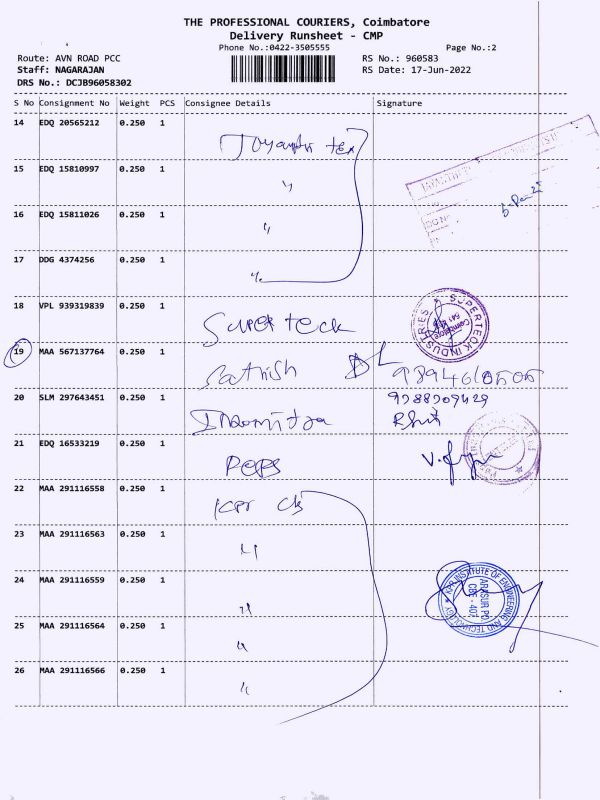 THE PROFESSIONAL COURIERS, Coimbatore
Delivery Runsheet - CMP
Phone No.:0422-3505555
Page No.:2
Route: AVN ROAD PCC
RS No.: 960583
Staff: NAGARAJAN
RS Date: 17-Jun-2022
DRS No.: DCJB96058302
S No Consignment No Weight PCS Consignee Details Signature
14 EDQ 20565212 0.250 1
15 EDQ 15810997 0.250 1 "
16 EDQ 15811026 0.250 1 "
17 DDG 4374256 0.250 1 "
18 VPL 939319839 0.250 1 Super teck SUPERTECK INDUSTRIES Coimbatore
19 MAA 567137764 0.250 1 Sathish
20 SLM 297643451 0.250 1
21 EDQ 16533219 0.250 1 PEPS
22 MAA 291116558 0.250 1
23 MAA 291116563 0.250 1 "
24 MAA 291116559 0.250 1 " KPR INSTITUTE OF ENGINEERING AND TECHNOLOGY ARASUR PO CBE - 407
25 MAA 291116564 0.250 1 "
26 MAA 291116566 0.250 1 "